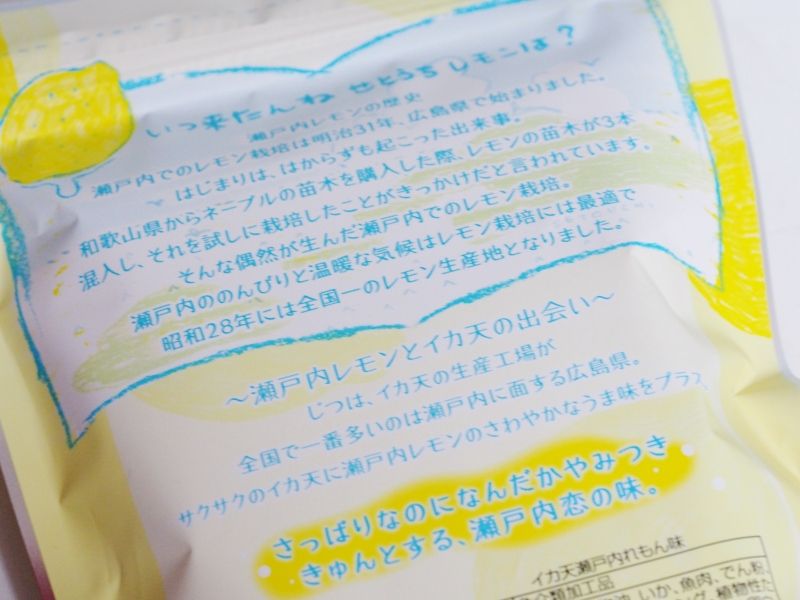 いつ来たんね せとうちレモンは？
瀬戸内レモンの歴史
瀬戸内でのレモン栽培は明治31年、広島県で始まりました。
はじまりは、はからずも起こった出来事。
和歌山県からネーブルの苗木を購入した際、レモンの苗木が3本
混入し、それを試しに栽培したことがきっかけだと言われています。
そんな偶然が生んだ瀬戸内でのレモン栽培。
瀬戸内ののんびりと温暖な気候はレモン栽培には最適で
昭和28年には全国一のレモン生産地となりました。
〜瀬戸内レモンとイカ天の出会い〜
じつは、イカ天の生産工場が
全国で一番多いのは瀬戸内に面する広島県。
サクサクのイカ天に瀬戸内レモンのさわやかなうま味をプラス
さっぱりなのになんだかやみつき
きゅんとする、瀬戸内恋の味。
イカ天瀬戸内れもん味
介類加工品
いか、魚肉、でん粉、
植物性た